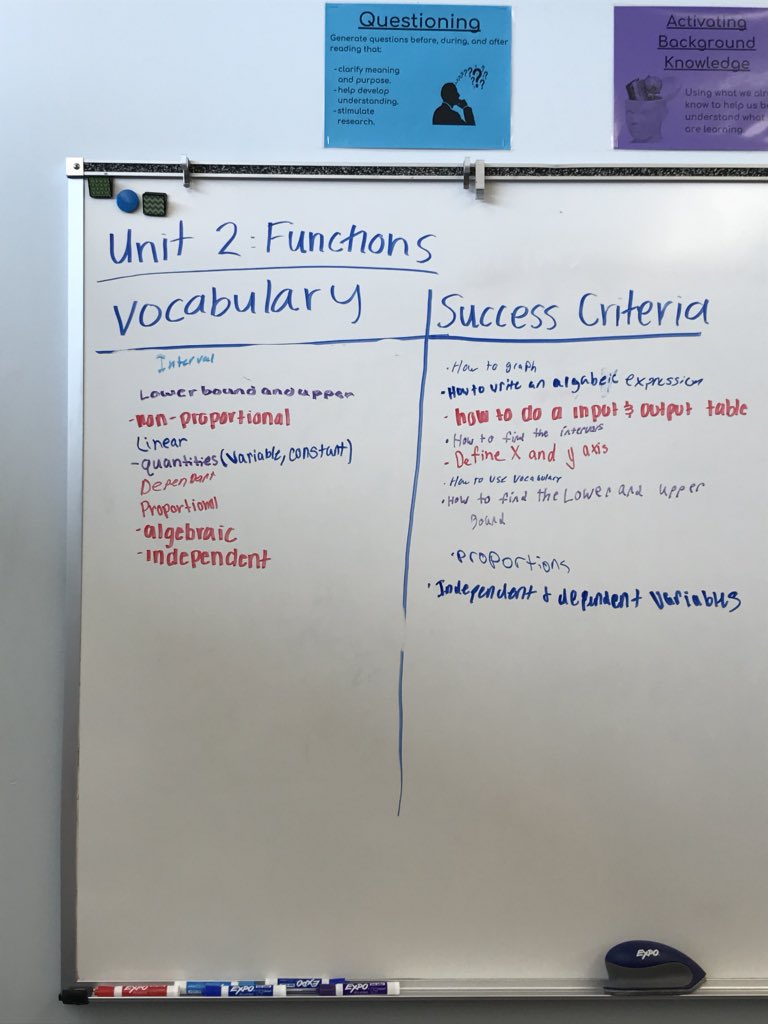 Questioning
Generate questions before, during, and after
reading that:
-clarify meaning
and purpose.
-help develop
understanding.
-stimulate
research.
Activating
Background
Knowledge
Using what we alr
know to help us be
understand what
are learning.
Unit 2: Functions
Vocabulary
Success Criteria
Interval
Lower bound and upper
-non-proportional
Linear
-quantities (variable, constant)
Dependant
Proportional
-algebraic
-independent
· How to graph
·How to write an algabeic expression
- how to do a input & output table
· How to find the intervals
- Define X and y axis
· How to use vocabulary
· How to find the Lower and upper
Bound
·proportions
· Independent & dependent variables
EXPO
EXPO
EXPO
EXPO
EXPO